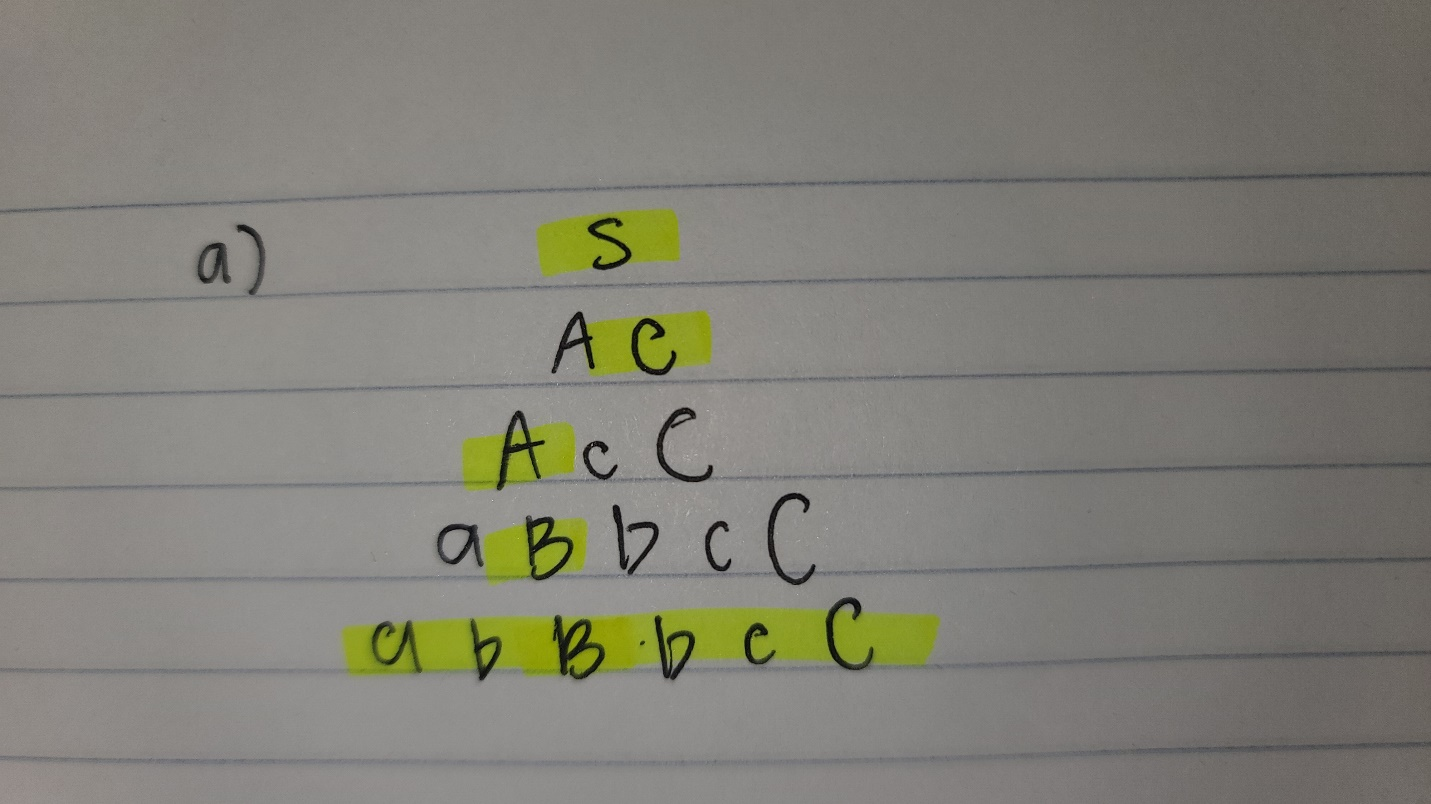 a) S
A C
A c C
a B b c C
a b B b c C